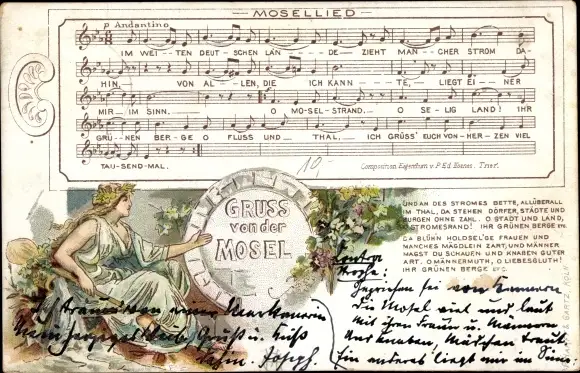 MOSELLIED
p Andantino
IM WEI-TEN DEUT-SCHEN LAN-DE- ZIEHT MAN-CHER STROM DA-
HIN, VON AL-LEN, DIE ICH KANN-TE, LIEGT EI-NER
MIR IM SINN. O MO-SEL-STRAND, O SE-LIG LAND! IHR
GRÜ-NEN BER-GE O FLUSS UND THAL, ICH GRÜSS' EUCH VON HER-ZEN VIEL
TAU-SEND-MAL.
10-
Composition Eigentum v. P. Ed. Hoenes. Trier.
GRUSS
von der
MOSEL
UND AN DES STROMES BETTE, ALLÜBERALL
IM THAL, DA STEHEN DÖRFER, STÄDTE UND
BURGEN OHNE ZAHL. O STADT UND LAND,
O STROMESRAND! IHR GRÜNEN BERGE etc.
DA BLÜHN HOLDSEL'GE FRAUEN UND
MANCHES MÄGDLEIN ZART, UND MÄNNER
MAGST DU SCHAUEN UND KNABEN GUTER
ART. O MÄNNERMUTH, O LIEBESGLUTH!
IHR GRÜNEN BERGE etc.
Gepriesen sei von
Die Mosel viel und laut
Mit ihren Frauen u. Männern
Und Knaben, Mädchen traut
Ein anderes liegt mir im Sinn.
Mein herzogeliebte, Gruß u. Kuß
Dein. Joseph.
& GARTZ, KÖLN